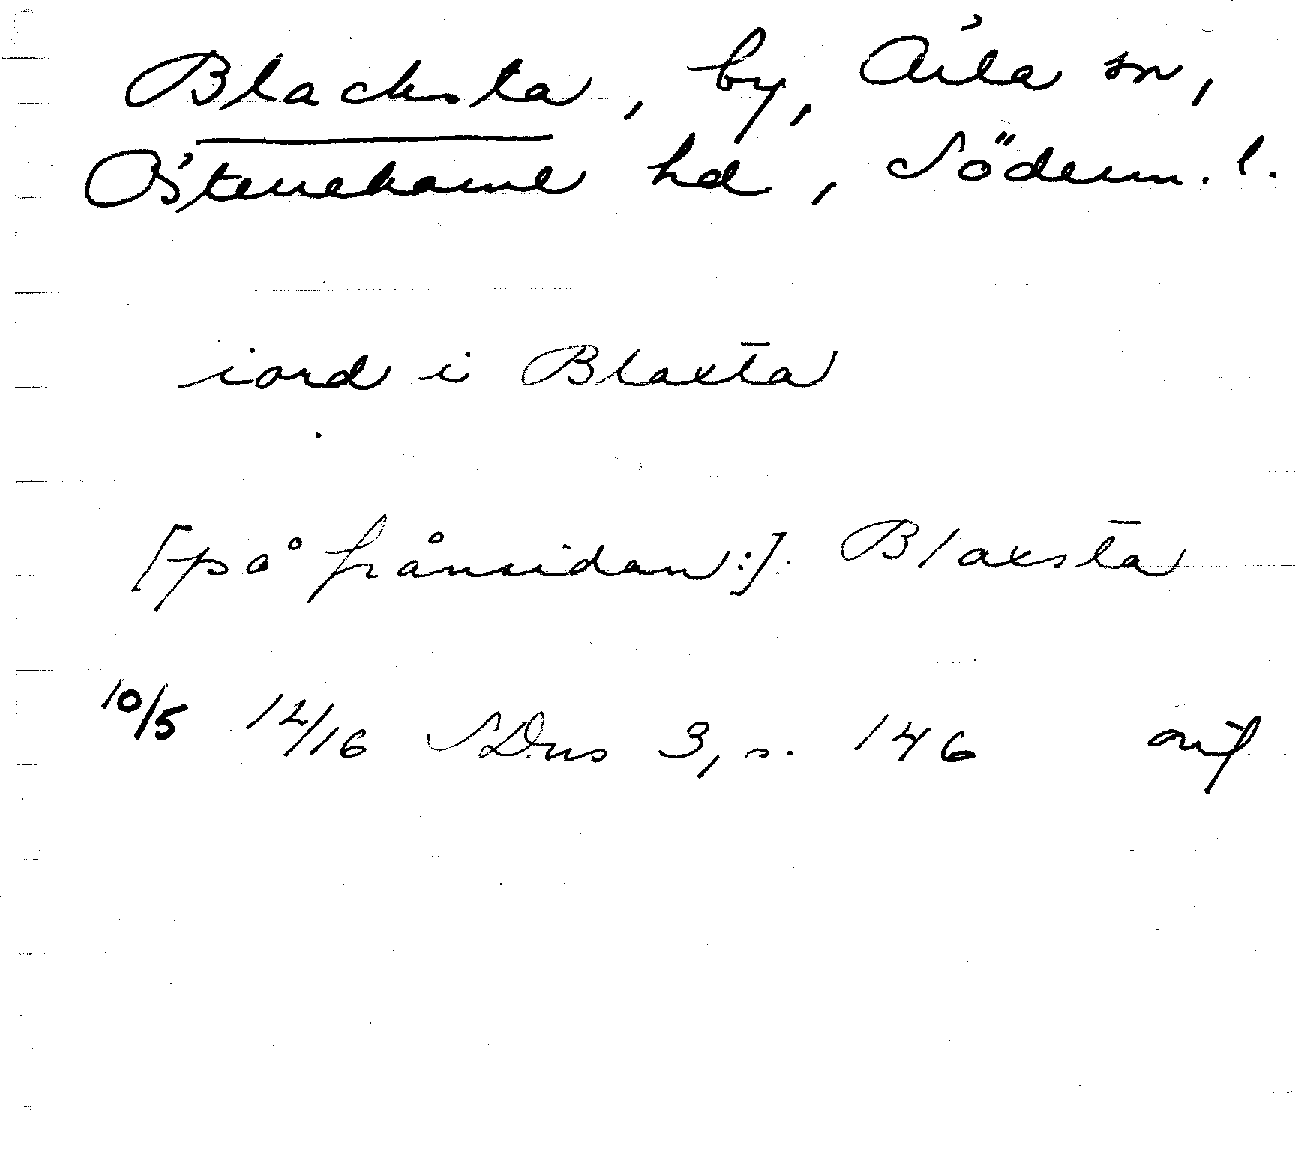 Blacksta, by, Årla sn,
Österrekarne hd, Söderm. l.
iord i Blaxta
[på frånsidan:]. Blaxsta
10/5 1416 SDns 3, s. 146